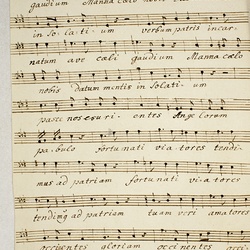 gaudium Manna cælo
in so la ti um verbum patris incar
natum ave cæli gaudium Manna cælo
nobis datum mentis in solati um
pasce nos esuri entes Ange lorum
pa bulo fortunati via tores tendi
mus ad patriam fortunati via tores
tendimq ad patriam tuam veri amatores
occinentes gloriam occinentes